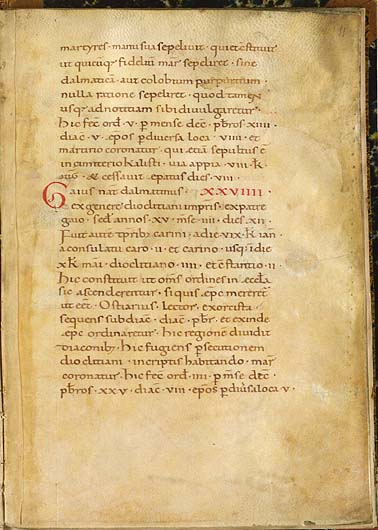 martyres · manu sua sepeliuit · qui et statuit
ut quicuq; fidelium mar̄ sepeliret · sine
dalmatica · aut colobium purpureum ·
nulla ratione sepeliret · quod tamen
usq; ad notitiam sibi diuulgaretur ·
hic fec̄ ord · v · p mense dec̄ · p̄bros xiiii ·
diac̄ · v · ep̄os p diuersa loca · viiii · et
martirio coronatur · qui etiā sepultus ē
in cimiterio kalisti · via appia · viii · k̄
&̄ cessauit ep̄atus dies · viii ·
Gaius nat̄ dalmatinus · XXVIIII ·
ex genere diocl̄itiani imp̄ris · ex patre
gaio · sed̄ annos · xv · m̄se · iiii · dies · xii ·
Fuit aute t̄prib; carini · a die xvi · k̄ ian̄ ·
a consulatu caro · ii · et carino · usq; i die
x k̄ mai · diocl̄itiano · iiii · et c̄stantio · ii ·
hic constituit ut om̄s ordines in eccl̄a
sic ascenderentur · si quis ep̄c mereret̄
ut eēt · Ostiarius · Lector · exorcista
sequens · subdiac̄ · diac̄ · p̄br · et exinde
ep̄c ordinaretur · hic regione diuidit
diaconib; · hic fugiens p̄secutionem
diocl̄itiani · in criptis habitando · mar̄
coronatur · hic fec̄ ord̄ · iiii · p m̄se dec̄ ·
p̄bros · xxv · diac̄ · viii · ep̄os p diu̅sa loca v ·